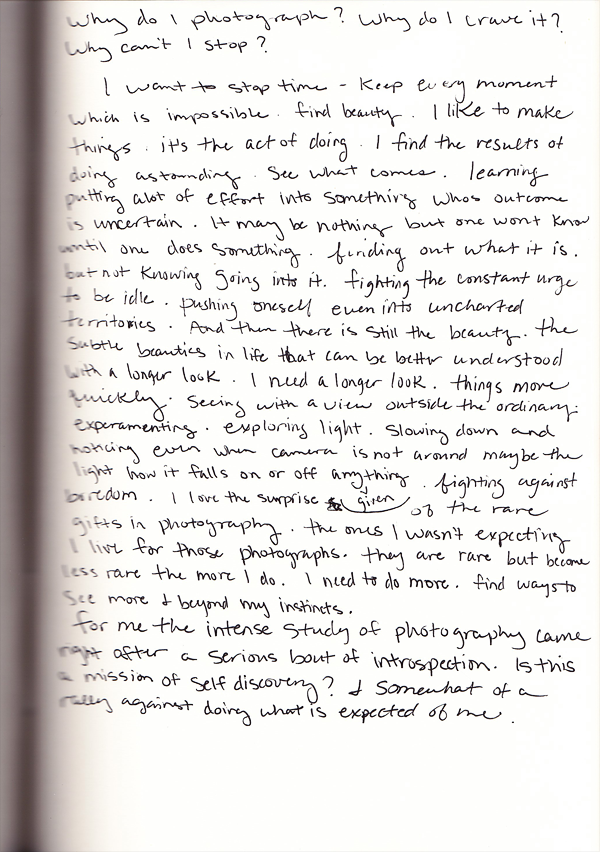 Why do I photograph? Why do I crave it?
Why can't I stop?
I want to stop time - Keep every moment
which is impossible. find beauty. I like to make
things. it's the act of doing. I find the results of
doing astounding. See what comes. learning
putting alot of effort into something whos outcome
is uncertain. It may be nothing but one wont know
until one does something. finding out what it is.
but not knowing going into it. fighting the constant urge
to be idle. pushing oneself even into uncharted
territories. And then there is still the beauty. the
subtle beauties in life that can be better understood
with a longer look. I need a longer look. things move
quickly. Seeing with a view outside the ordinary.
experamenting. exploring light. Slowing down and
noticing even when camera is not around maybe the
light how it falls on or off anything. fighting against
boredom. I love the surprise given of the rare
gifts in photography. the ones I wasn't expecting
I live for those photographs. they are rare but become
less rare the more I do. I need to do more. find ways to
See more & beyond my instincts.
for me the intense study of photography came
right after a serious bout of introspection. Is this
a mission of self discovery? & Somewhat of a
rally against doing what is expected of me.